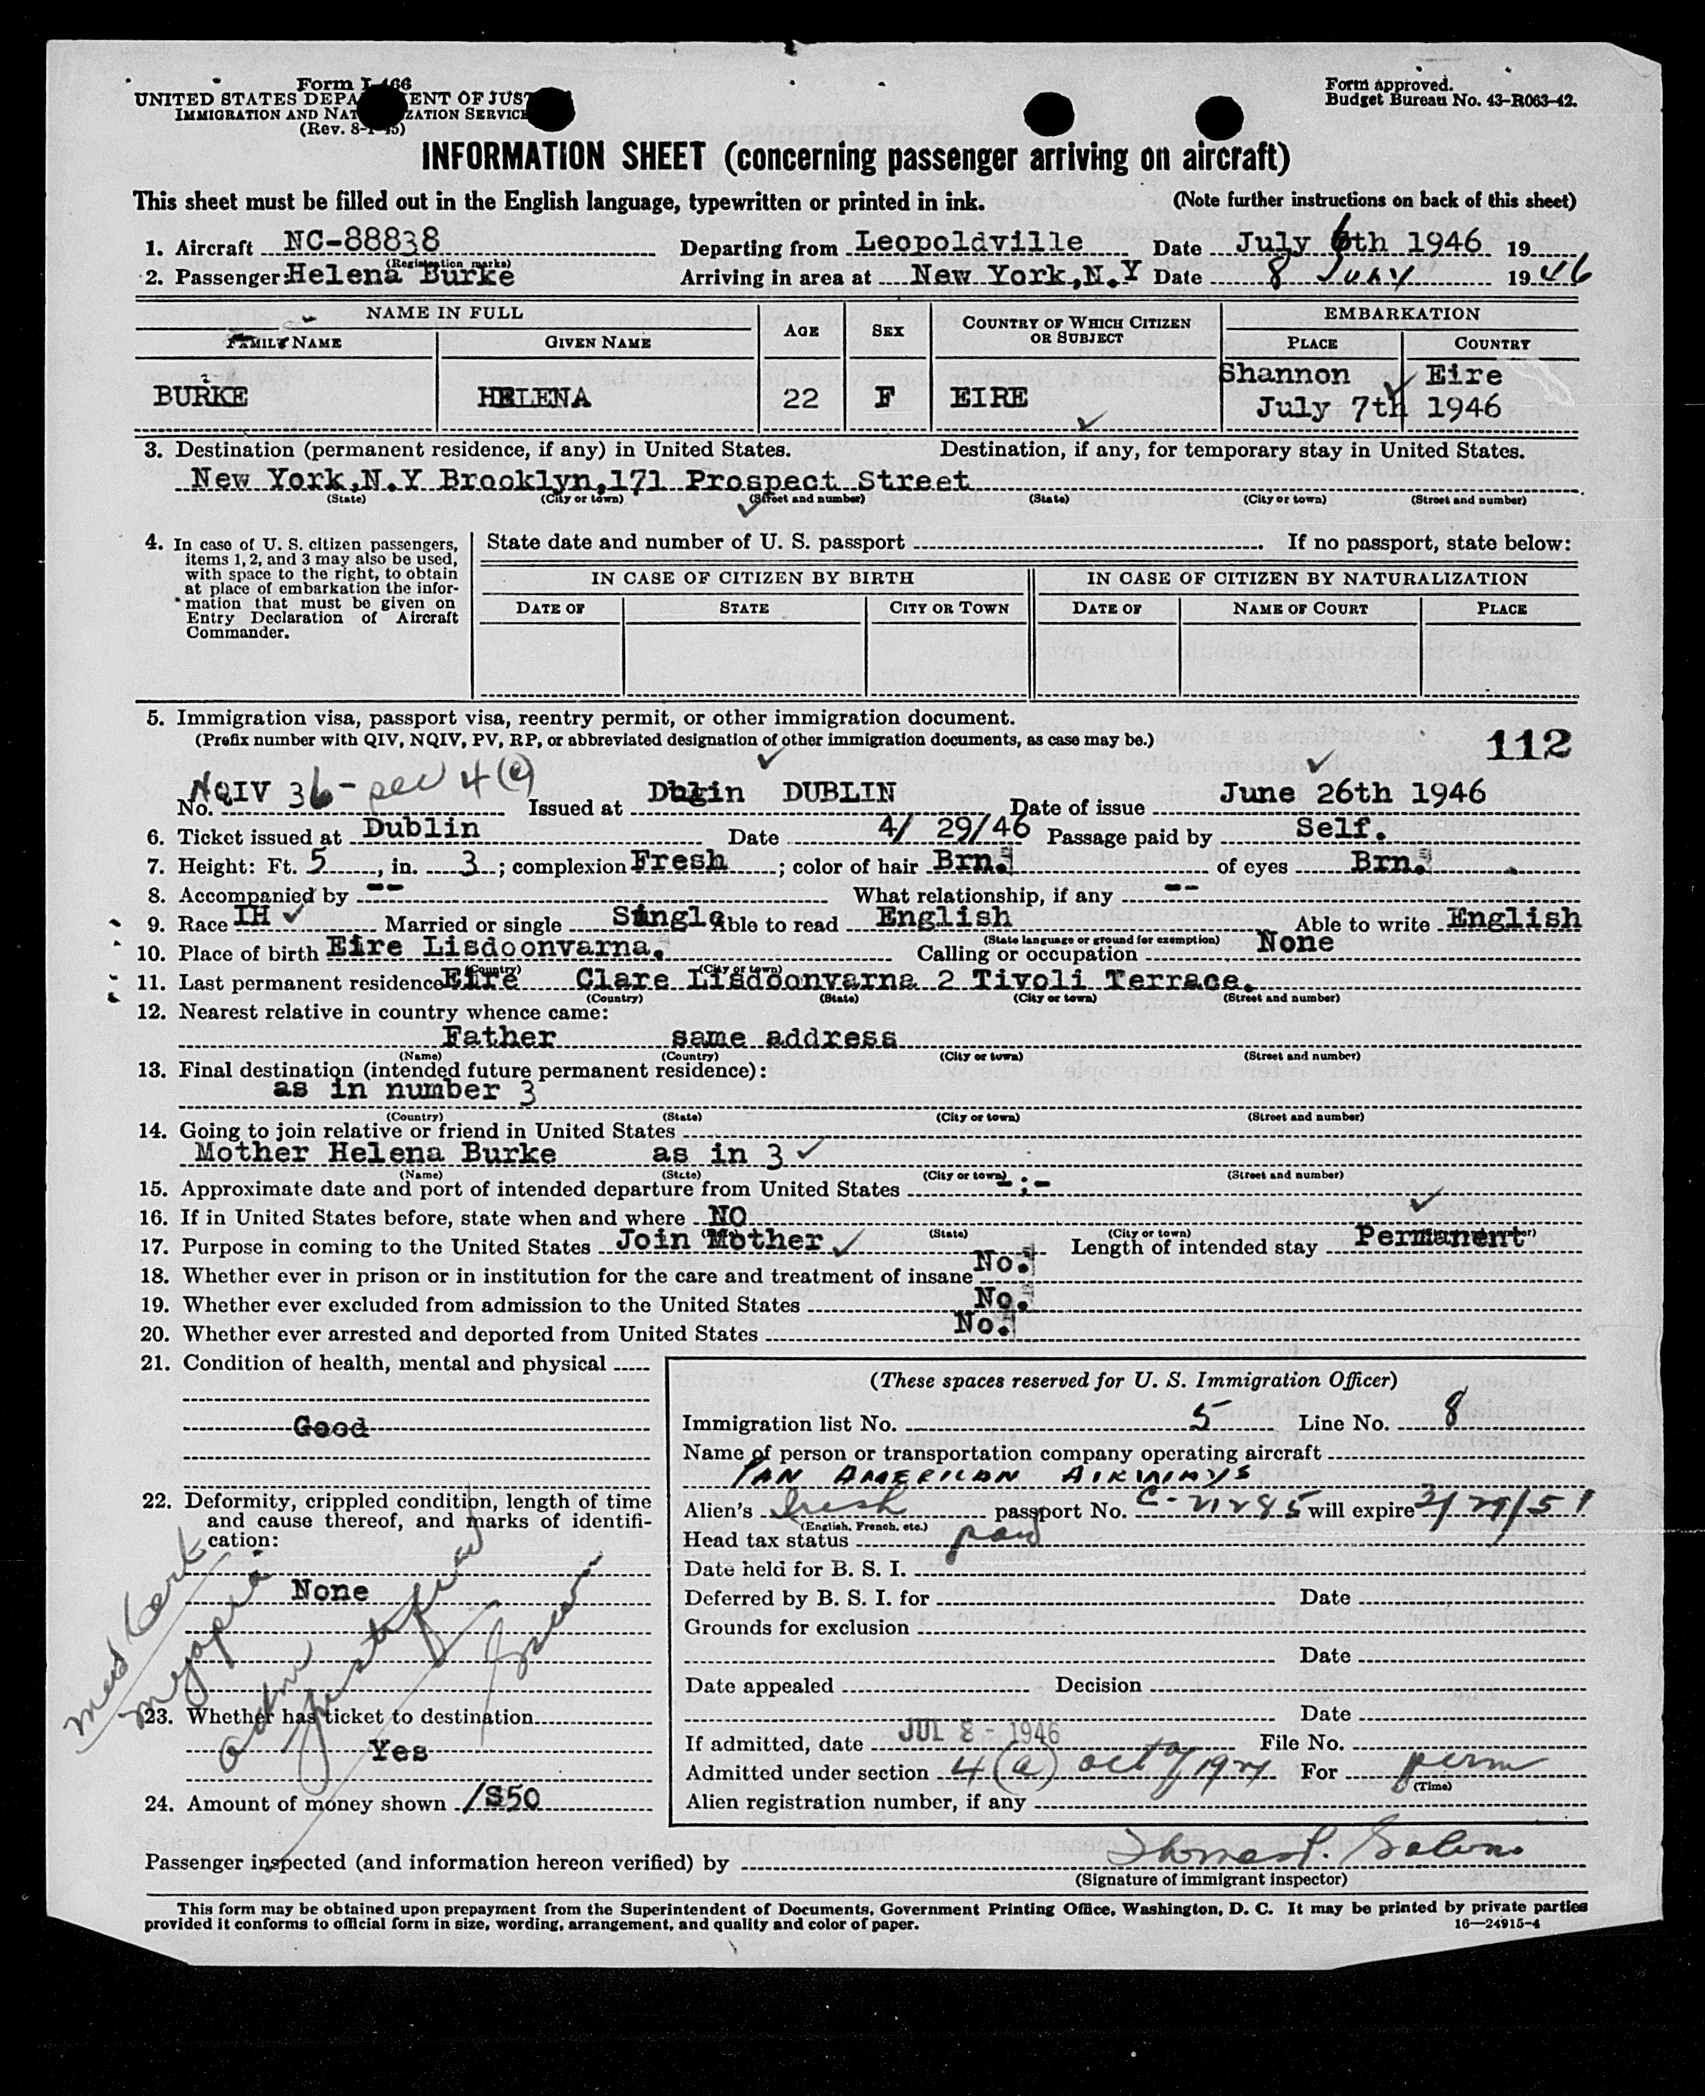 Form I-466
UNITED STATES DEPARTMENT OF JUSTICE
IMMIGRATION AND NATURALIZATION SERVICE
(Rev. 8-1-45)
Form approved.
Budget Bureau No. 43-R063-42.
INFORMATION SHEET (concerning passenger arriving on aircraft)
This sheet must be filled out in the English language, typewritten or printed in ink. (Note further instructions on back of this sheet)
1. Aircraft NC-88838 Departing from Leopoldville Date July 6th 1946 19
(Registration marks)
2. Passenger Helena Burke Arriving in area at New York,N.Y Date 8 July 1946
NAME IN FULL AGE SEX COUNTRY OF WHICH CITIZEN OR SUBJECT EMBARKATION
FAMILY NAME GIVEN NAME PLACE COUNTRY
BURKE HELENA 22 F EIRE Shannon Eire
July 7th 1946
3. Destination (permanent residence, if any) in United States. Destination, if any, for temporary stay in United States.
New York,N.Y Brooklyn,171 Prospect Street
(State) (City or town) (Street and number) (State) (City or town) (Street and number)
4. In case of U. S. citizen passengers,
items 1, 2, and 3 may also be used,
with space to the right, to obtain
at place of embarkation the infor-
mation that must be given on
Entry Declaration of Aircraft
Commander.
State date and number of U. S. passport If no passport, state below:
IN CASE OF CITIZEN BY BIRTH IN CASE OF CITIZEN BY NATURALIZATION
DATE OF STATE CITY OR TOWN DATE OF NAME OF COURT PLACE
5. Immigration visa, passport visa, reentry permit, or other immigration document.
(Prefix number with QIV, NQIV, PV, RP, or abbreviated designation of other immigration documents, as case may be.) 112
No. NQIV 36 - sec 4(c) Issued at DUBLIN Date of issue June 26th 1946
6. Ticket issued at Dublin Date 4/ 29/46 Passage paid by Self.
7. Height: Ft. 5, in. 3; complexion Fresh; color of hair Brn. of eyes Brn.
8. Accompanied by -- What relationship, if any --
9. Race IH Married or single Single Able to read English Able to write English
(State language or ground for exemption)
10. Place of birth Eire Lisdoonvarna. Calling or occupation None
(Country) (City or town)
11. Last permanent residence Eire Clare Lisdoonvarna 2 Tivoli Terrace.
(Country) (State) (City or town) (Street and number)
12. Nearest relative in country whence came:
Father same address
(Name) (Country) (City or town) (Street and number)
13. Final destination (intended future permanent residence):
as in number 3
(Country) (State) (City or town) (Street and number)
14. Going to join relative or friend in United States
Mother Helena Burke as in 3
(Name) (State) (City or town) (Street and number)
15. Approximate date and port of intended departure from United States -:-
16. If in United States before, state when and where NO
(State) (City or town)
17. Purpose in coming to the United States Join Mother Length of intended stay Permanent
18. Whether ever in prison or in institution for the care and treatment of insane No.
19. Whether ever excluded from admission to the United States No.
20. Whether ever arrested and deported from United States No.
21. Condition of health, mental and physical
Good
22. Deformity, crippled condition, length of time
and cause thereof, and marks of identifi-
cation:
None
med cert
myopia
23. Whether has ticket to destination
Yes
24. Amount of money shown /$50
(These spaces reserved for U. S. Immigration Officer)
Immigration list No. 5 Line No. 8
Name of person or transportation company operating aircraft
PAN AMERICAN AIRWAYS
Alien's Irish passport No. C-21285 will expire 3/29/51
(English, French, etc.)
Head tax status paid
Date held for B. S. I.
Deferred by B. S. I. for Date
Grounds for exclusion
Date
Date appealed Decision
Date
If admitted, date JUL 8 - 1946 File No.
Admitted under section 4(a) act of 1924 For perm
(Time)
Alien registration number, if any
Passenger inspected (and information hereon verified) by
(Signature of immigrant inspector)
This form may be obtained upon prepayment from the Superintendent of Documents, Government Printing Office, Washington, D. C. It may be printed by private parties
provided it conforms to official form in size, wording, arrangement, and quality and color of paper. 16—24915-4